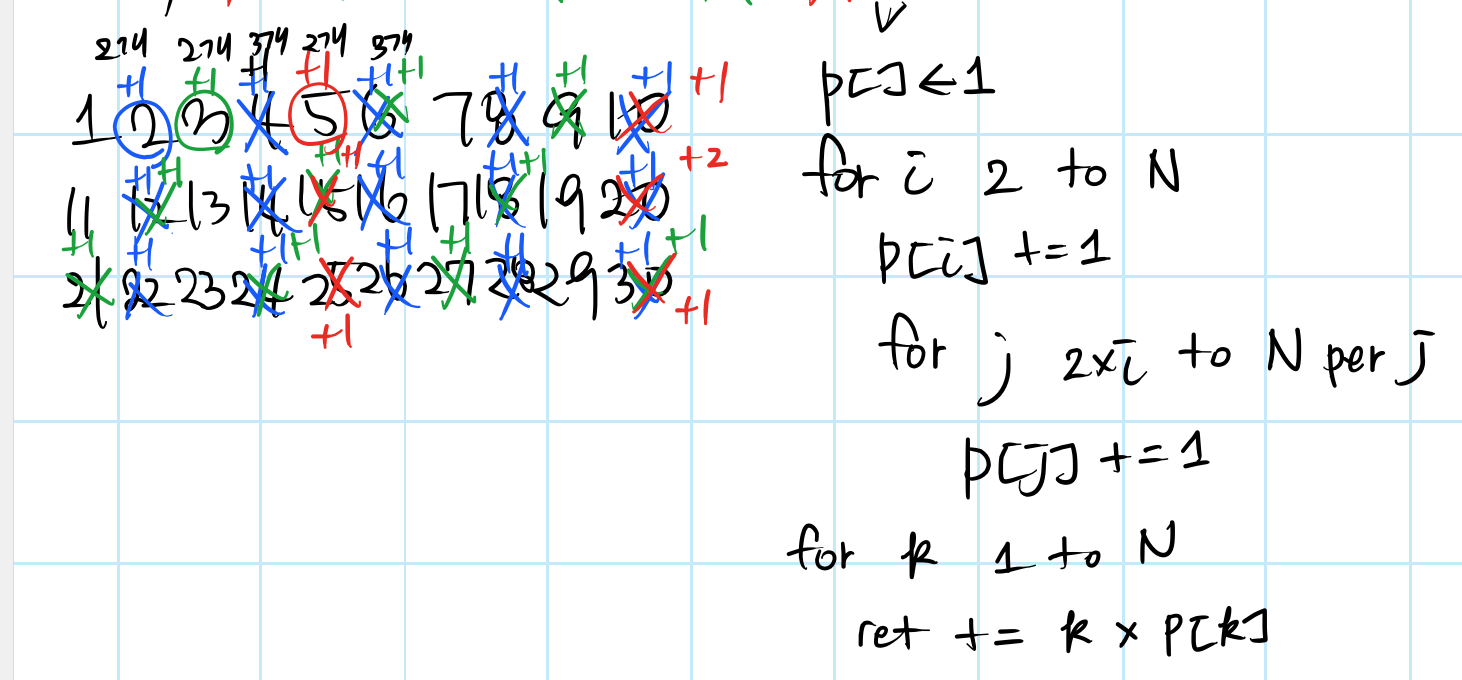 2개 2개 3개 2개 3개
+1 +1 +1 +1 +1 +1 +1 +1 +1 +1
1 2 3 4 5 6 7 8 9 10
+1 +1 +1 +1 +1 +1 +1 +1 +1 +2
11 12 13 14 15 16 17 18 19 20
+1 +1 +1 +1 +1 +1 +1 +1 +1
21 22 23 24 25 26 27 28 29 30
+1 +1
p[] ← 1
for i 2 to N
p[i] += 1
for j 2×i to N per j
p[j] += 1
for k 1 to N
ret += k × p[k]